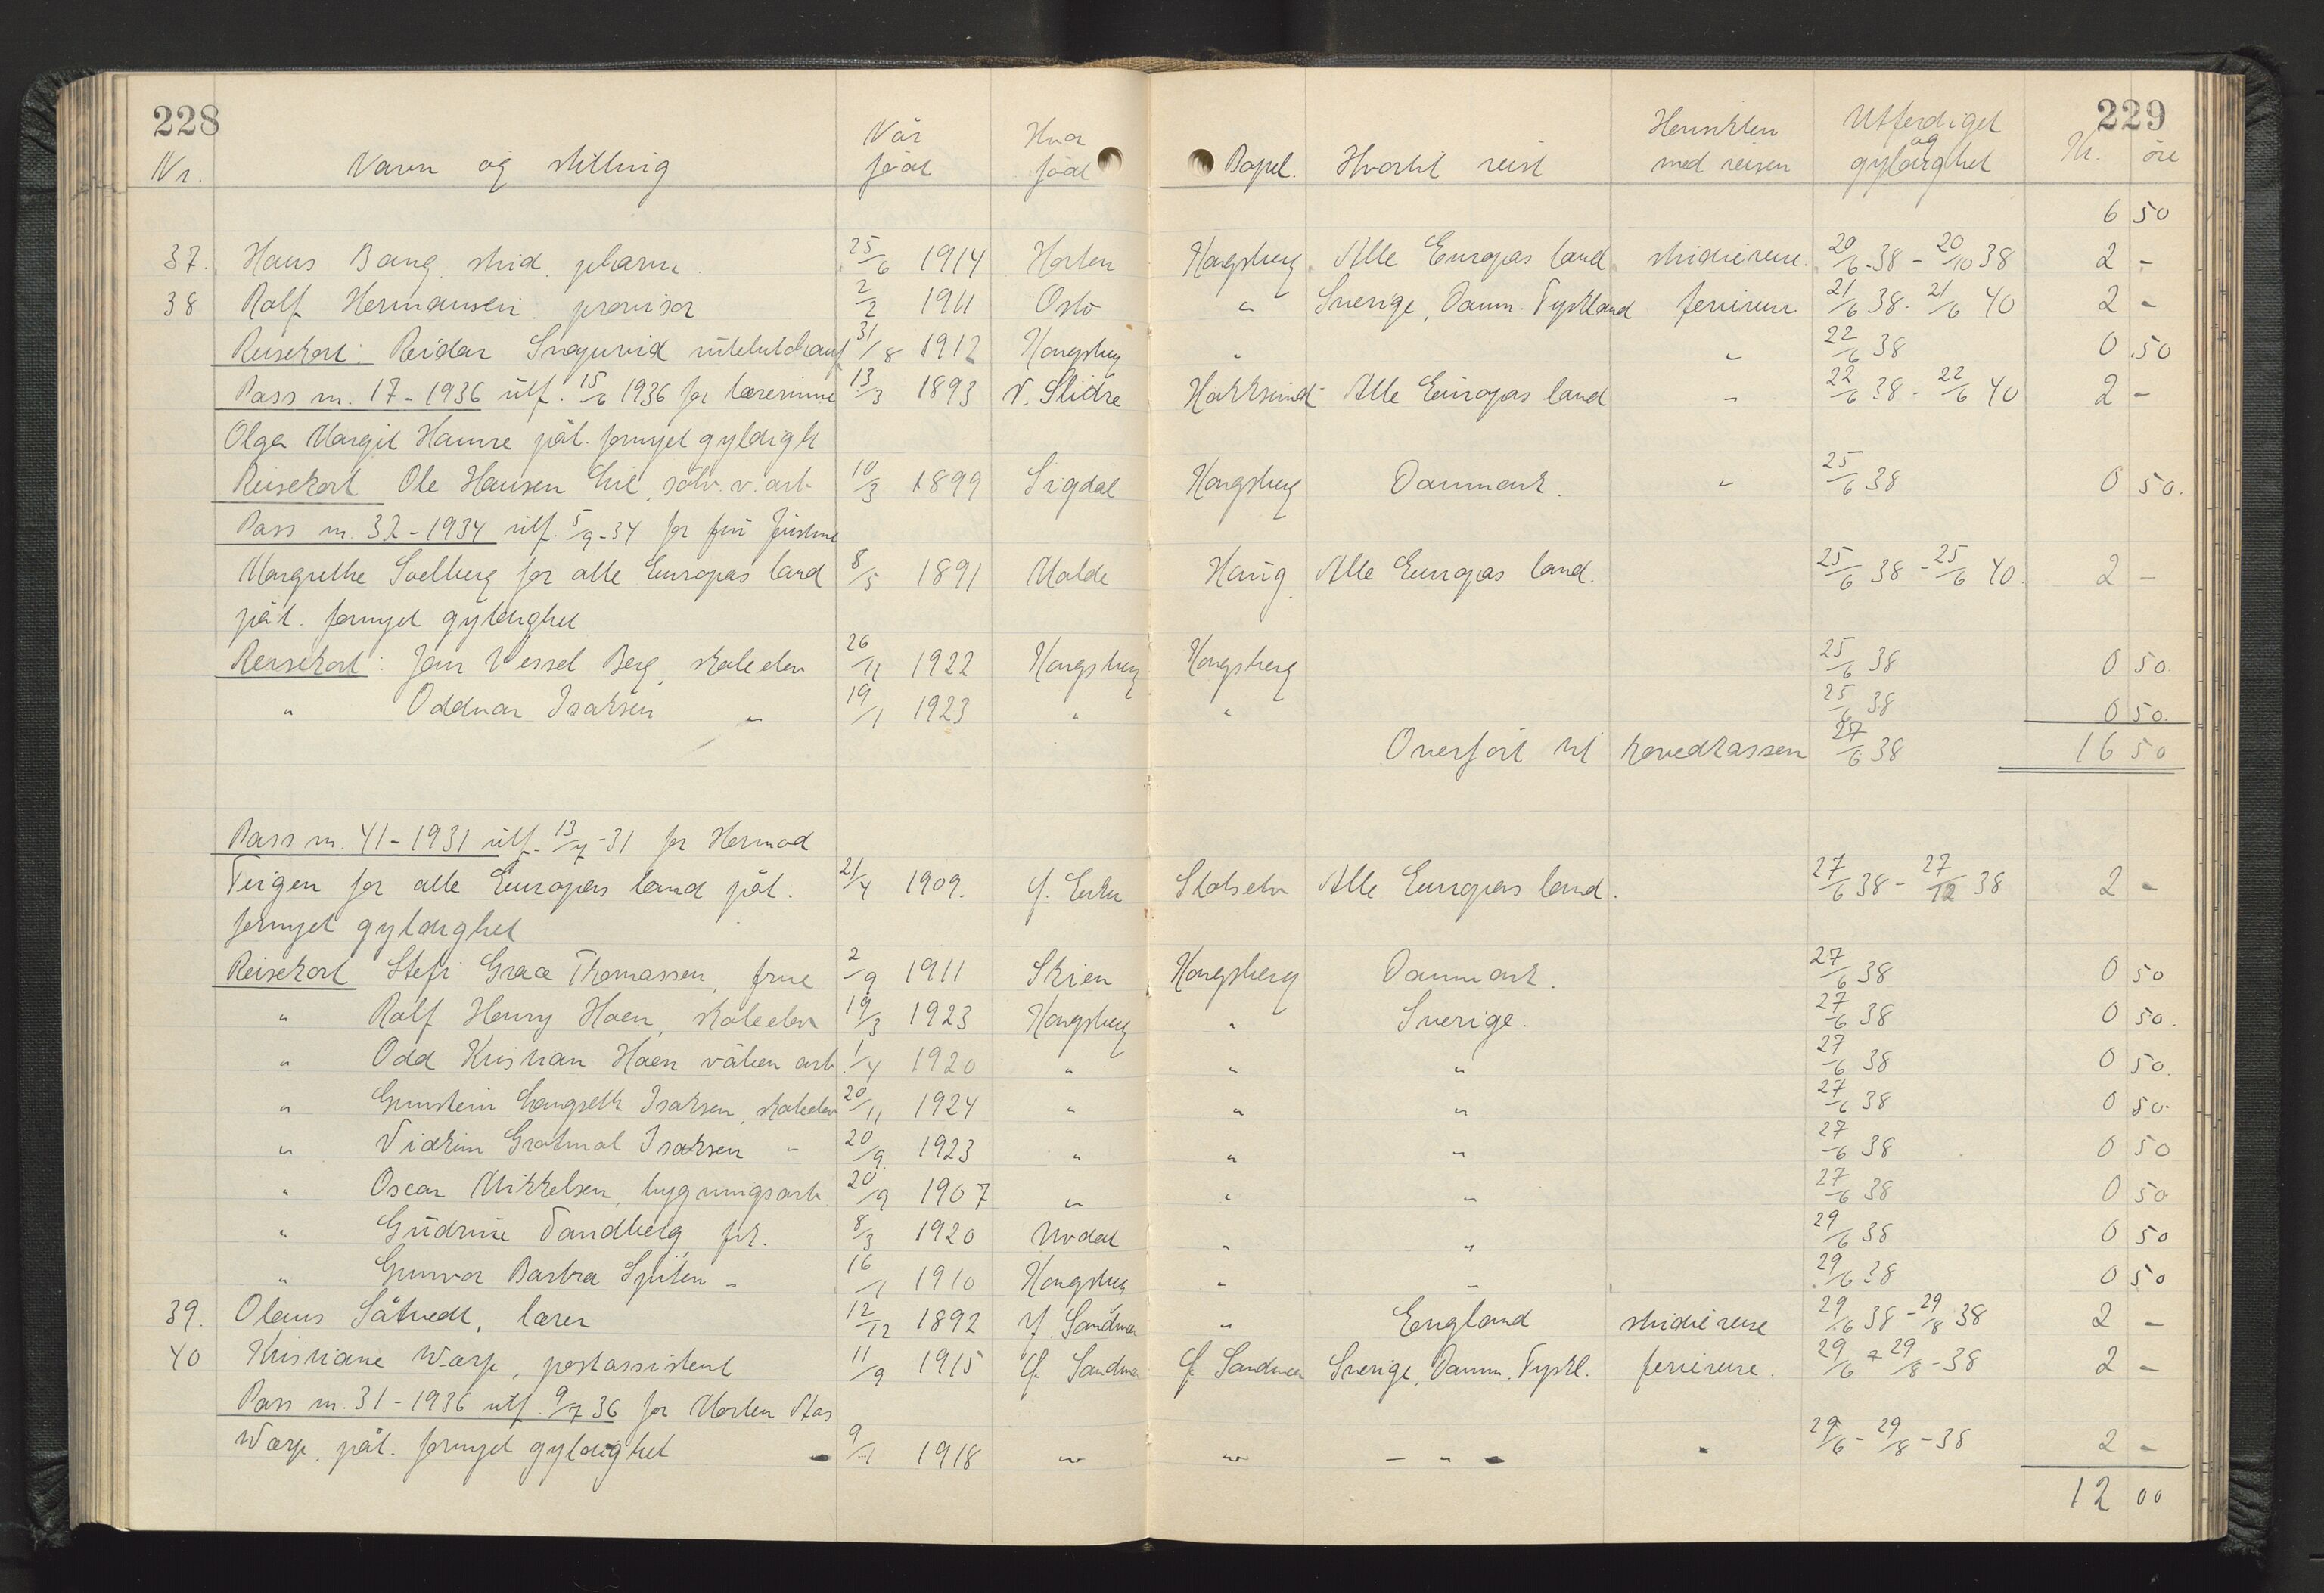 228
229
Nr. Navn og stilling Når født Hvor født Bopel. Hvortil reist Hensikten med reisen Utferdiget og gyldighet Kr. öre
6 50
37. Hans Bang, stud. pharm. 25/6 1914 Horten Kongsberg Alle Europas land studiereise. 20/6-38 - 20/10 38 2 -
38 Rolf Hermansen provisor 2/2 1911 Oslo " Sverige, Danm. Tyskland feriereise 21/6 38 - 21/6 40 2 -
Reisekort: Reidar 31/8 1912 Kongsberg " " 22/6 38 0 50
Pass nr. 17-1936 utf. 15/6 1936 for lærerinne 13/3 1893 V. Slidre Hokksund Alle Europas land " 22/6 38 - 22/6 40 2 -
Olga Margit Hamre påt. fornyet gyldigh
Reisekort Ole Hansen Lie, sölv.v.arb 10/3 1899 Sigdal Kongsberg Danmark. " 25/6 38 0 50.
Pass nr. 32-1934 utf. 5/9-34 for
Margrethe Solberg for alle Europas land 8/5 1891 Molde Haug. Alle Europas land. 25/6 38 - 25/6 40. 2 -
påt. fornyet gyldighet
Reisekort: Jan Wessel Berg, skoleelev 26/11 1922 Kongsberg Kongsberg 25/6 38 0 50.
" Oddvar Isaksen " 19/1 1923 " " 25/6 38 0 50.
Overfört til hovedkassen 27/6 38 16 50
Pass nr. 41-1931 utf. 13/7-31 for Hermod
Teigen for alle Europas land påt. 21/4 1909. Ö. Eiker Skotselv Alle Europas land. 27/6 38 - 27/12 38 2 -
fornyet gyldighet
Reisekort Stefi Grace Thomassen, frue 2/9 1911 Skien Kongsberg Danmark. 27/6 38 0 50
" Rolf Henry Hoen, skoleelev 19/3 1923 Kongsberg " Sverige. 27/6 38 0 50.
" Odd Kristian Hoen våben arb. 1/4 1920 " " " 27/6 38 0 50.
" Gunstein Langseth Isaksen, skoleelev 20/11 1924 " " " 27/6 38 0 50.
" Isaksen " 20/9 1923 " " " 27/6 38 0 50
" Oscar Mikkelsen, bygningsarb. 20/9 1907 " " " 27/6 38 0 50
" Gudrun Tandberg, frk. 8/3 1920 Uvdal " " 29/6 38 0 50
" Gunvor Barbra Spiten " 16/1 1910 Kongsberg " " 29/6 38 0 50
39. Olaus Såtvedt, lærer 12/12 1892 Y. Sandsvær " England studiereise 29/6 38 - 29/8 38 2 -
40 Kristiane Warp, postassistent 11/9 1915 Ö. Sandsvær Ö. Sandsvær Sverige, Danm. Tyskl. feriereise. 29/6 - 29/8 - 38 2 -
Pass nr. 31-1936 utf. 9/7 36 for Morten Aas
Warp, påt. fornyet gyldighet - 9/1 1918 " " - " - " 29/6 - 29/8 - 38 2 -
12 00